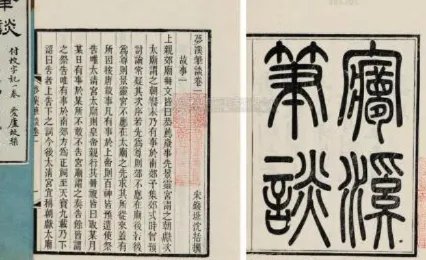 夢溪
筆談
夢溪筆談卷一
故事一
宋錢塘沈括撰
上親郊廟冊文皆曰恭薦歲事先景靈宮謂之朝獻次
太廟謂之朝饗末乃有事於南郊予集郊式時曾預
討論常疑其次序若先為尊則郊不應在廟後若後
為尊則景靈宮不應在太廟之先求其所從來蓋有
所因按唐故事凡有事於上帝則百神皆預遣使祭
告唯太清宮太廟則皇帝親行其冊祝皆曰取某月
某日有事於某所不敢不告宮廟謂之奏告餘皆謂
之祭告唯有事於南郊方為正祠至天寶九載乃下
詔曰告者上告下之詞今後太清宮宜稱朝獻太廟
筆談
付校字記一卷